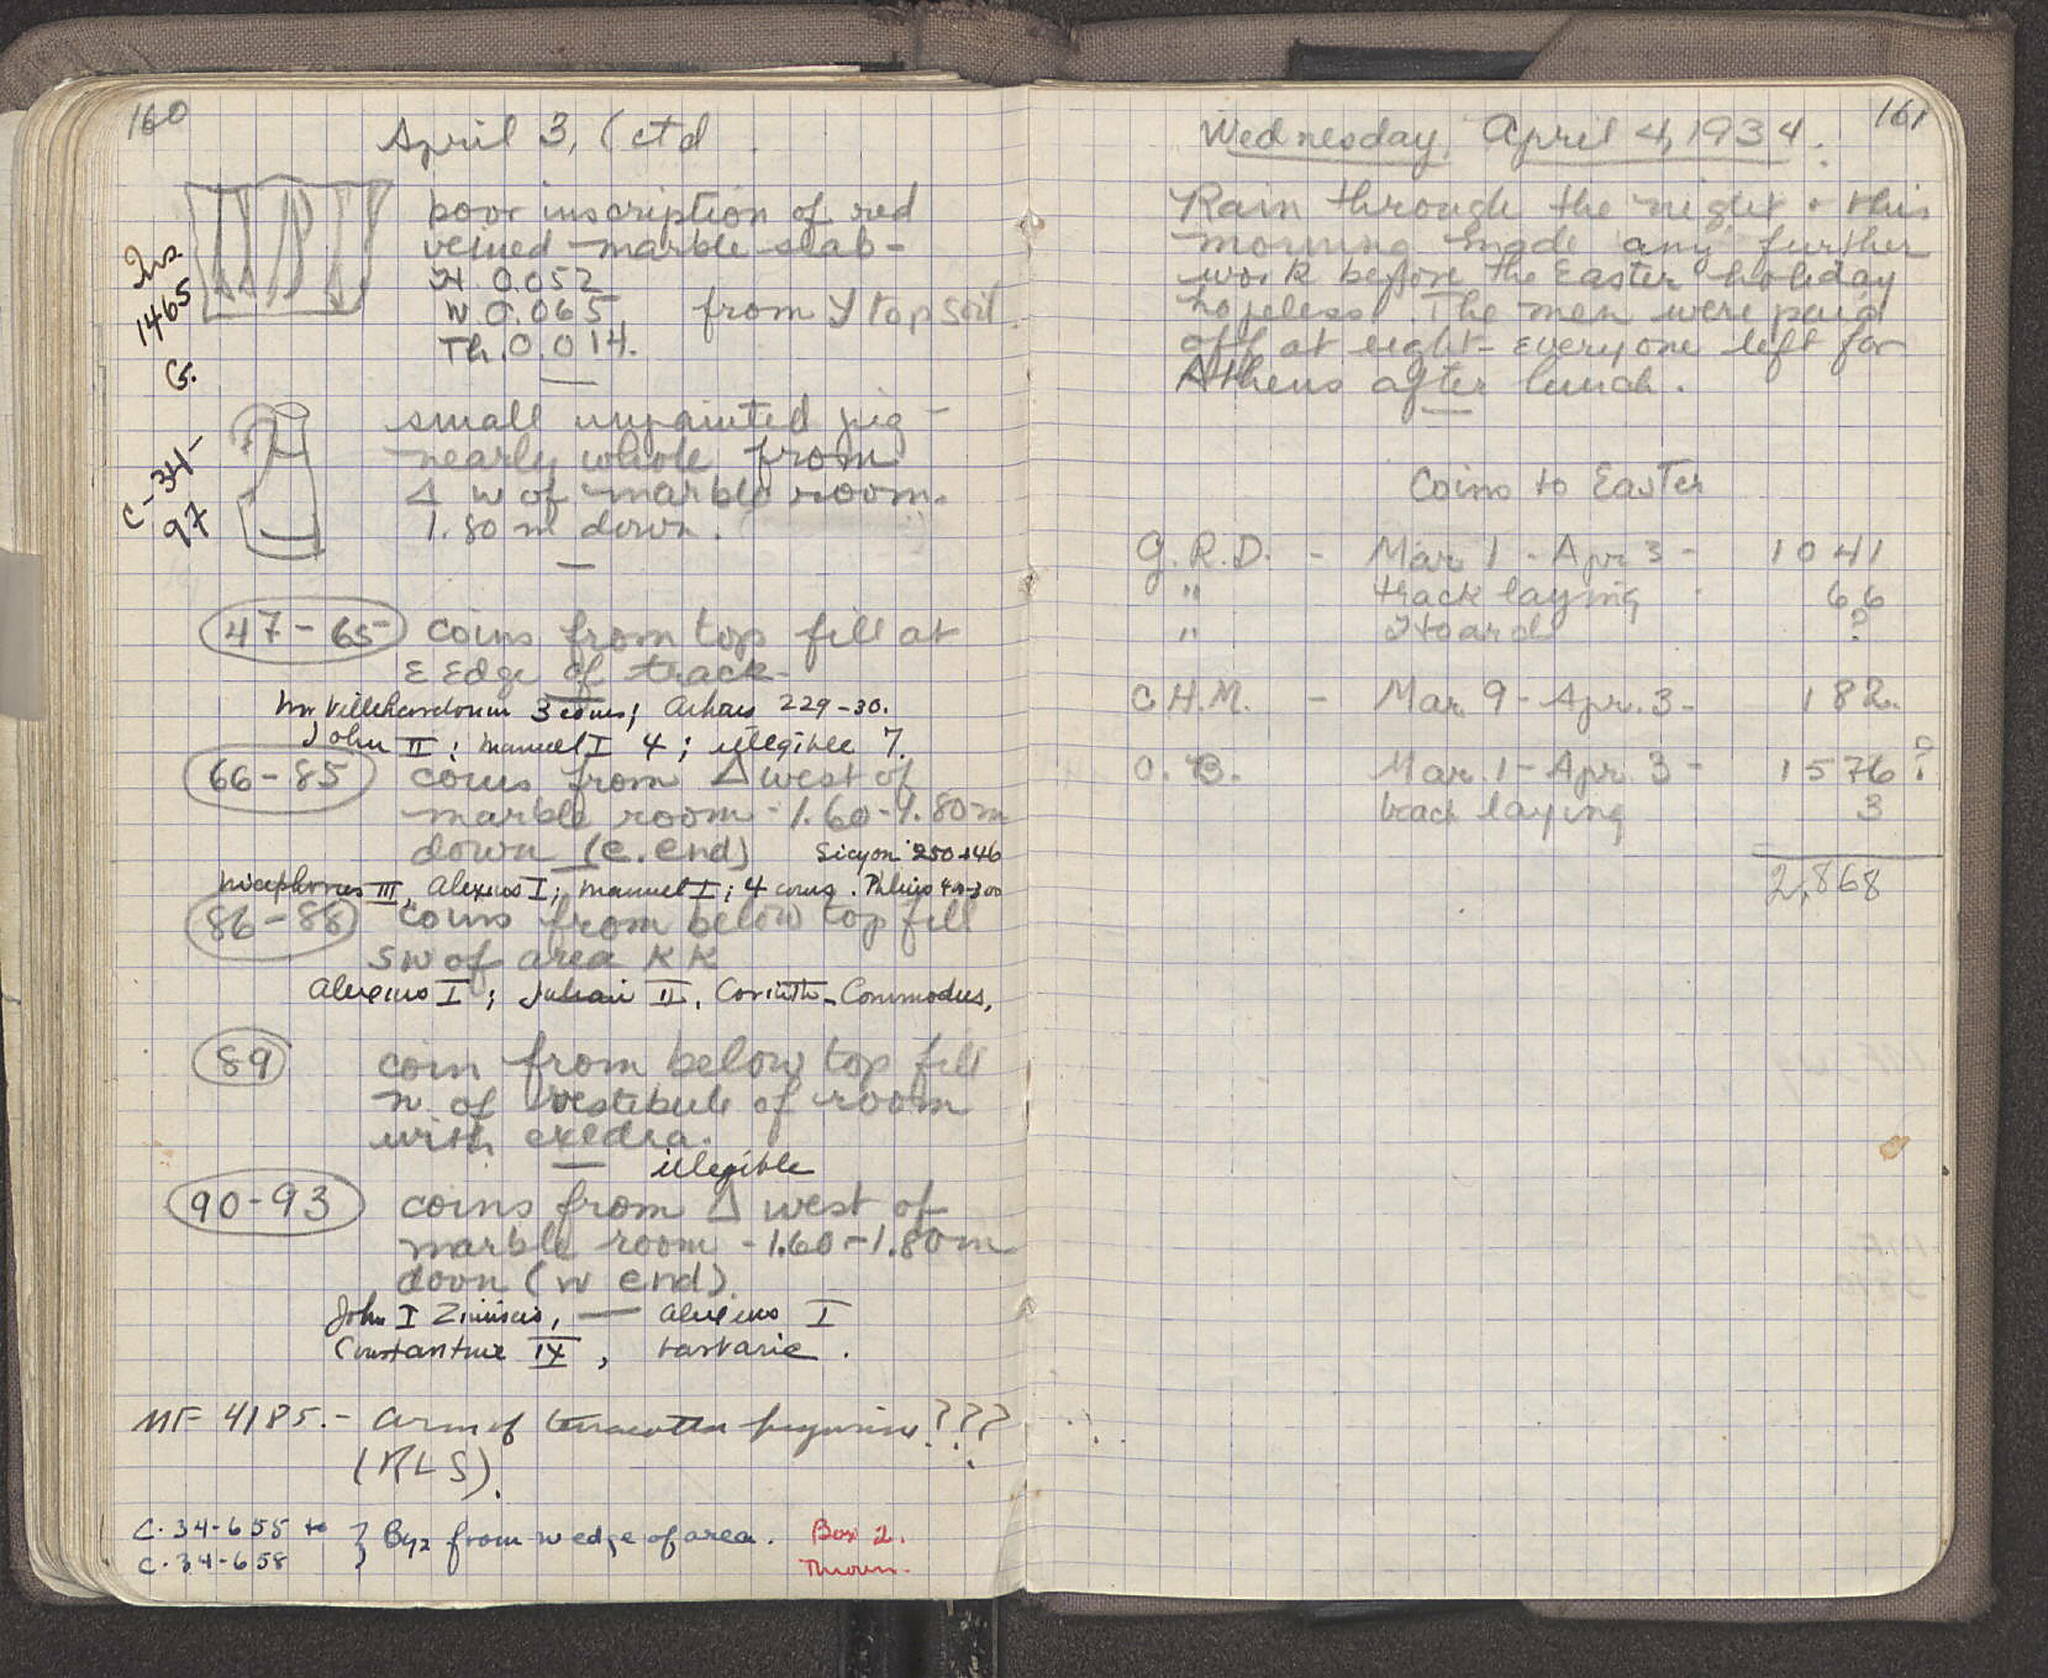 160
April 3, (ctd.
Ins.
1465
G.
poor inscription of red
veined marble slab-
H. 0.052
W. 0.065 from Y top soil.
Th. 0.014.
C-34-
97
small unpainted jug -
nearly whole from
Δ W of marble room.
1.80 m down.
47-65 coins from top fill at
E Edge of track-
Wm Villehardouin 3 coins; 229-30.
John II; Manuel I 4; illegible 7.
66-85 coins from Δ west of
marble room - 1.60-1.80 m
down (E. end) Sicyon 250-146
Nicephorus III, Alexius I; Manuel I; 4 coins. Phlius 400-300
86-88 coins from below top fill
SW of area KK
Alexius I; Julian II, Corinth-Commodus,
89 coin from below top fill
N. of vestibule of room
with exedra.
illegible
90-93 coins from Δ west of
marble room - 1.60-1.80 m
down (W end).
John I Zimisces, — Alexius I
Constantine IX, .
MF 4185.- Arm of terracotta figurine???
(RLS).
C.34-655 to } Byz from W edge of area. Box 2.
C.34-658 Thrown.
161
Wednesday, April 4, 1934.
Rain through the night & this
morning made any further
work before the Easter holiday
hopeless. The men were paid
off at eight - everyone left for
Athens after lunch.
Coins to Easter
G.R.D. - Mar 1 - Apr 3 - 1041
" track laying - 66
" Hoard ?
C.H.M. - Mar. 9 - Apr. 3 - 182.
O.B. Mar. 1 - Apr. 3 - 1576?
track laying 3
2,868